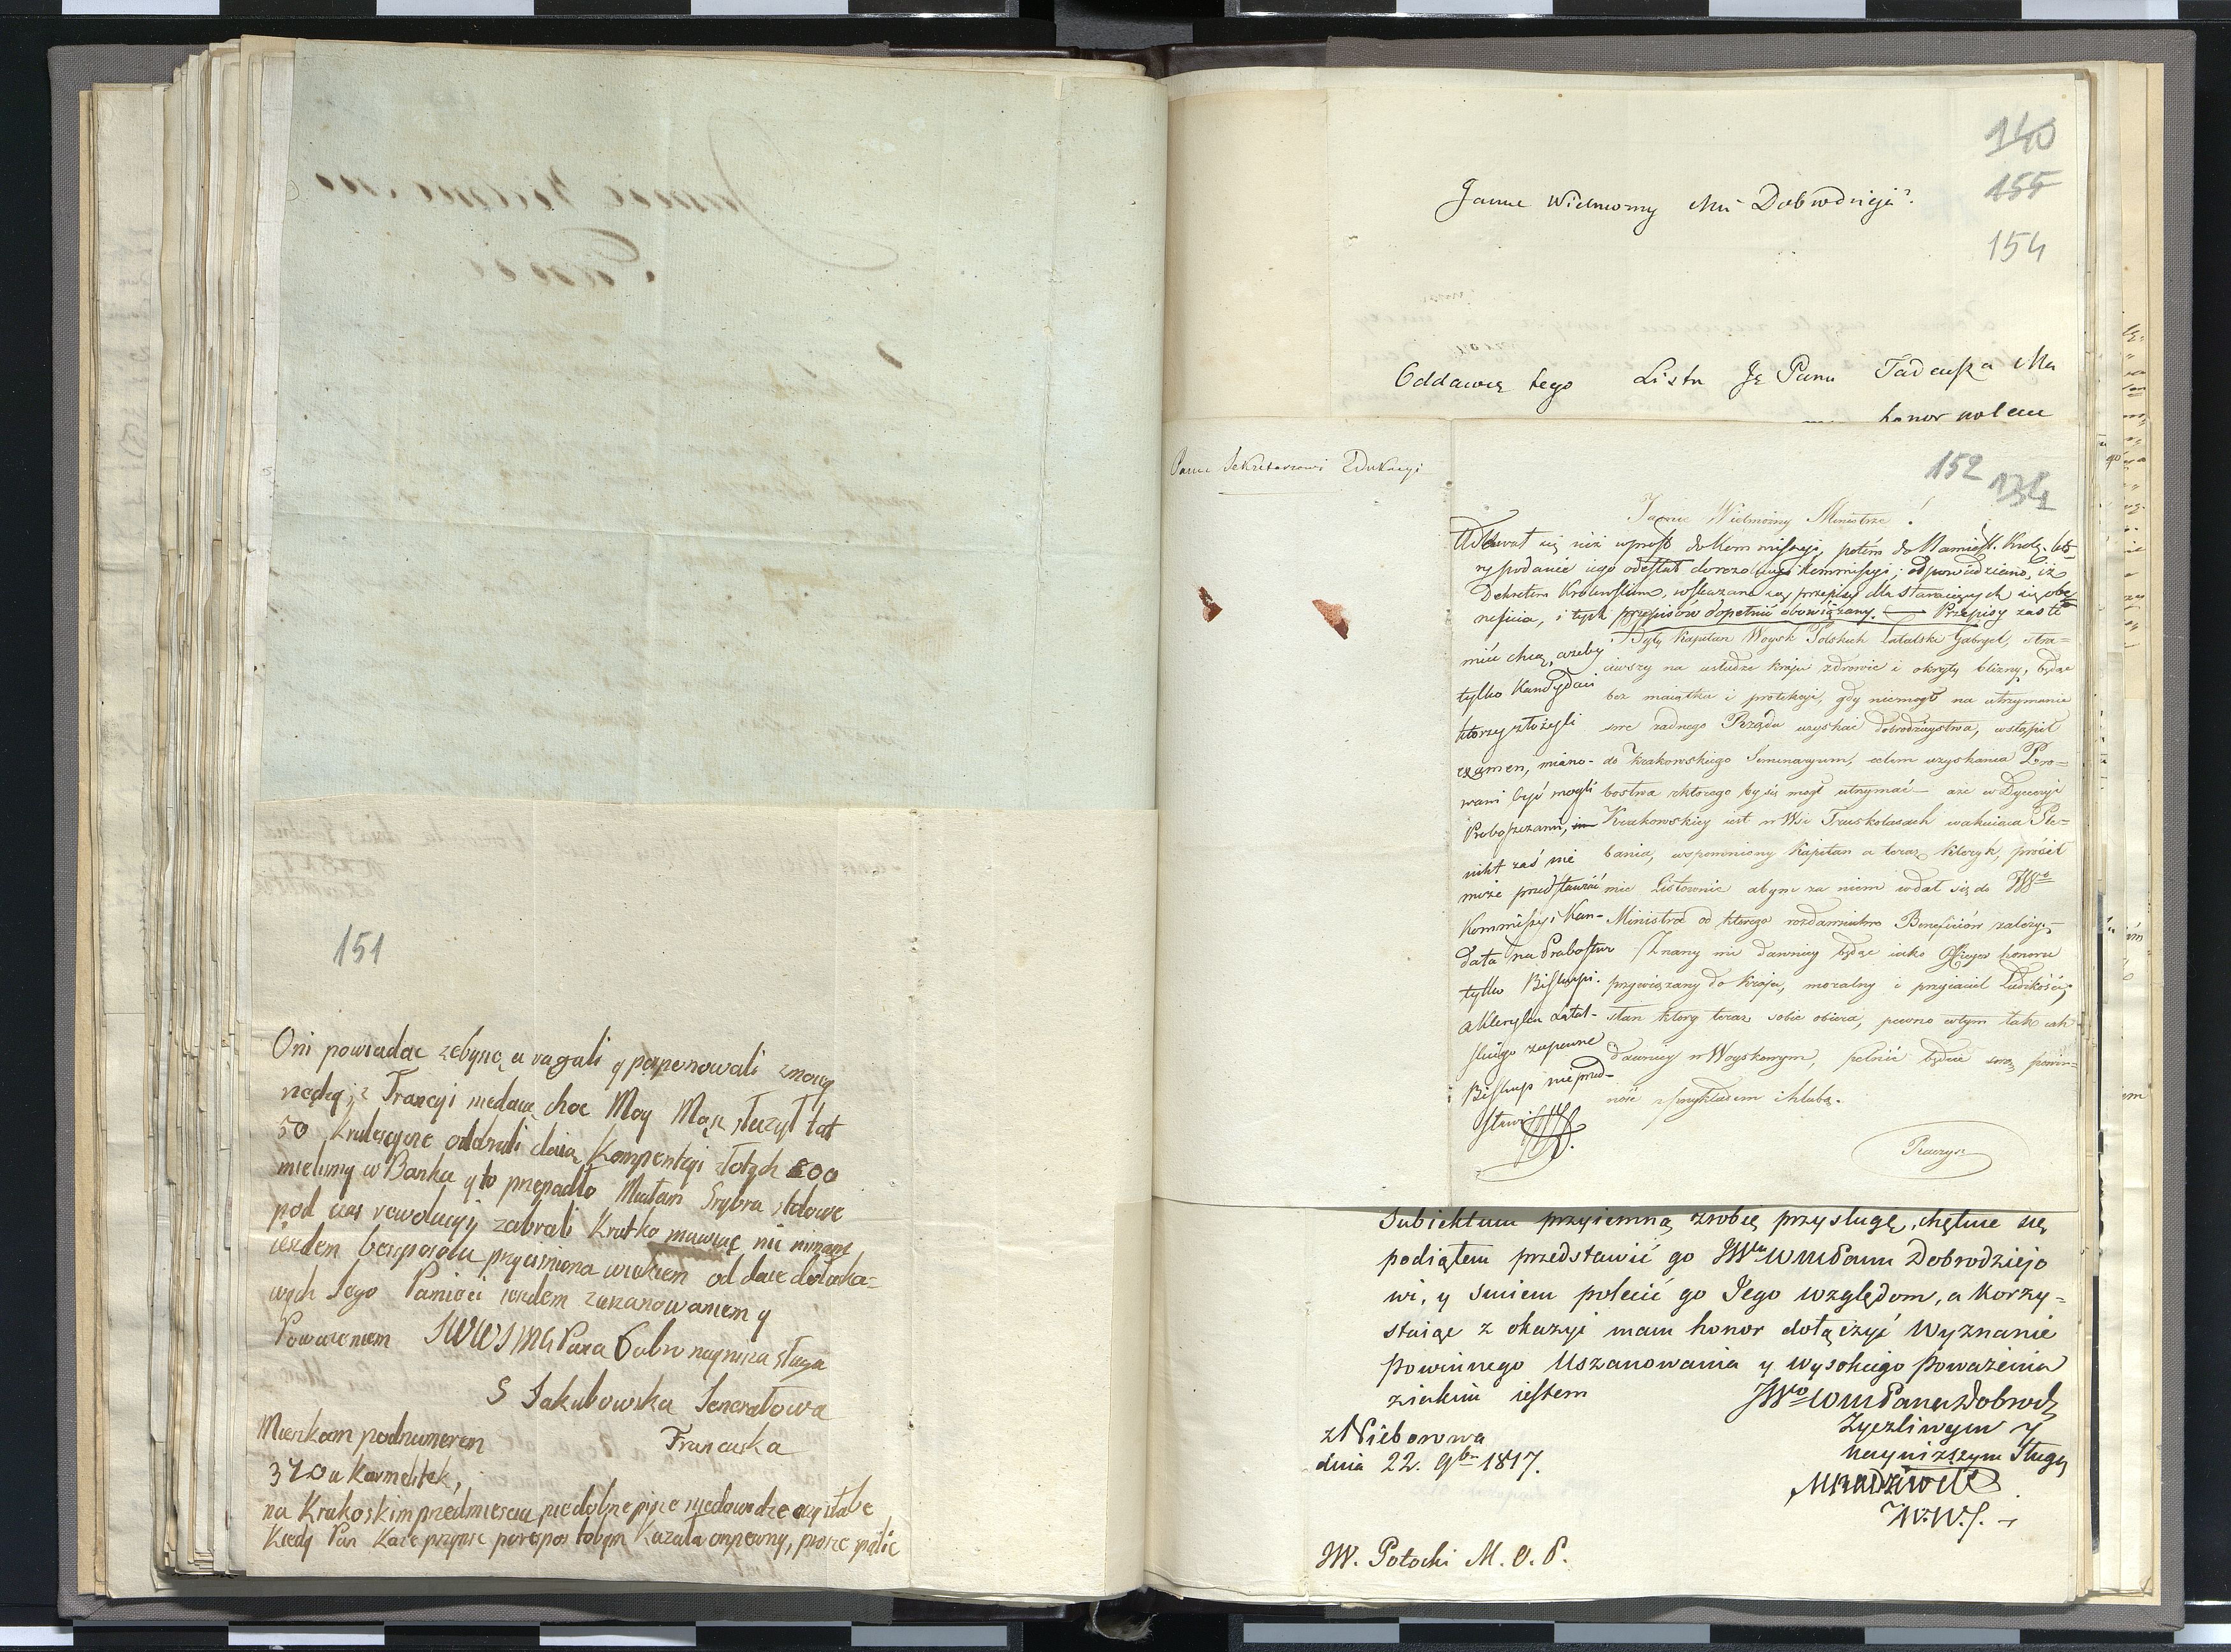 151
Oni powiadac zebysie u vagali y proponowali znowy
nedzę; z Francyi niedaią choc Moy Mąsz słuzył lat
50 Krulesczyzne odebrali daią Kompentcyi złotych 800
mielismy w Banku y to przepadło Miałam Srybra stołowe
pod czas rewolucyji zabrali Krotko muwiąc nic nimam
iezdem bezsposobu przycisniona wiekiem od daie do łaska=
wych Jego Pamięci iezdem zuszanowaniem y
Powazeniem JWWJMG Pana Dobr naynisza sługa
S Jakubowska Jenerałowa
Francuska
Mieszkam podnumerem
370 u Karmelitek,
na Krakoskim przedmiesciu niedobrze pisze niedowidze oczy słabe
Kiedy Pan Kaze przynise
140
155
154
Jasnie Wielmozny Mci Dobrodzieju
Oddawcę tego Listu Je Pana Tadeusza
honor polecic
Panu Sekretarzowi Edukacyi
152
Jasnie Wielmożny Ministrze!
Udawał się już wprost do Kommissyi, potém do Namiest. Król. któ=
ry podanie iego odesłał do rezolucyi Kommissyi; odpowiedziano, iż
Dekretem Królewskim, wskazane są przepisy dla staraiących się o be=
neficia, i tych przepisów dopełnić obowiązany. — Przepisy zaś te
mieć chcą, ażeby
tylko Kandydaci
ktorzy złożyli
examen, miano-
wani być mogli
Proboszczami,
nikt zaś nie
może przedstawiać
Kommissyi Kan-
data na Probostwo
tylko Biskupi.
a Kleryka Łatal-
skiego zapewne
Biskup nie przed-
stawi
Były Kapitan Woysk Polskich Łatalski Gabryel, stra=
ciwszy na usłudze kraju zdrowie i okryty blizny, będąc
bez maiątku i protekcyi, gdy niemogł na utrzymanie
swe żadnego Rządu uzyskać dobrodzieystwa, wstąpił
do Krakowskiego Seminaryum, celem uzyskania Pro=
bostwa z ktorego by się mogł utrzymać — aże w Dyecezyi
Krakowskiey iest w Wsi Truskolasach wakuiąca Ple=
bania, wspomniony Kapitan a teraz Kleryk, prosił
mie Listownie abym za niem wdał się do JWo
Ministra od ktorego rozdawnictwo Beneficiów zależy.
Znany mi dawniey będąc iako Officyer honoru
przywiązany do Kraju, moralny i przyiaciel Ludzkości,
stan ktory teraz sobie obiera, pewno w tym tak iak
dawniey w Woyskowym, pełnić będzie swą powin=
ność z przykładem i chlubą.
Subiektum przyiemną zrobię przysługę, chętnie się
podiąłem przedstawić go JWu WMPanu Dobrodziejo
wi, y smiem polecić go Jego względom, a korzy=
staiąc z okazyi mam honor dołączyć Wyznanie
powinnego Uszanowania y wysokiego Poważenia
z iakim iestem
JWo WMPana Dobrodz
Zyczliwym y
naynizszym Sługą
MRadziwiłł
W.W.
z Nieborowa
dnia 22. 9br 1817.
JW. Potocki M. O. P.